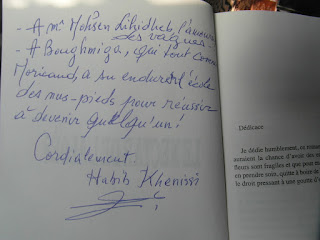 - A mr Mohsen Lihidheb l'amoureux
des vagues!
- A Boughmiga, qui tout comme
Moricaud, a su endurer l'école
des nus-pieds pour réussir
à devenir quelqu'un!
Cordialement
Habib Khenissi
Dédicace
Je dédie humblement, ce roman
auraient la chance d'avoir des
fleurs sont fragiles et que pour
en prendre soin, quitte à boire de
le droit pressant à une goutte d'